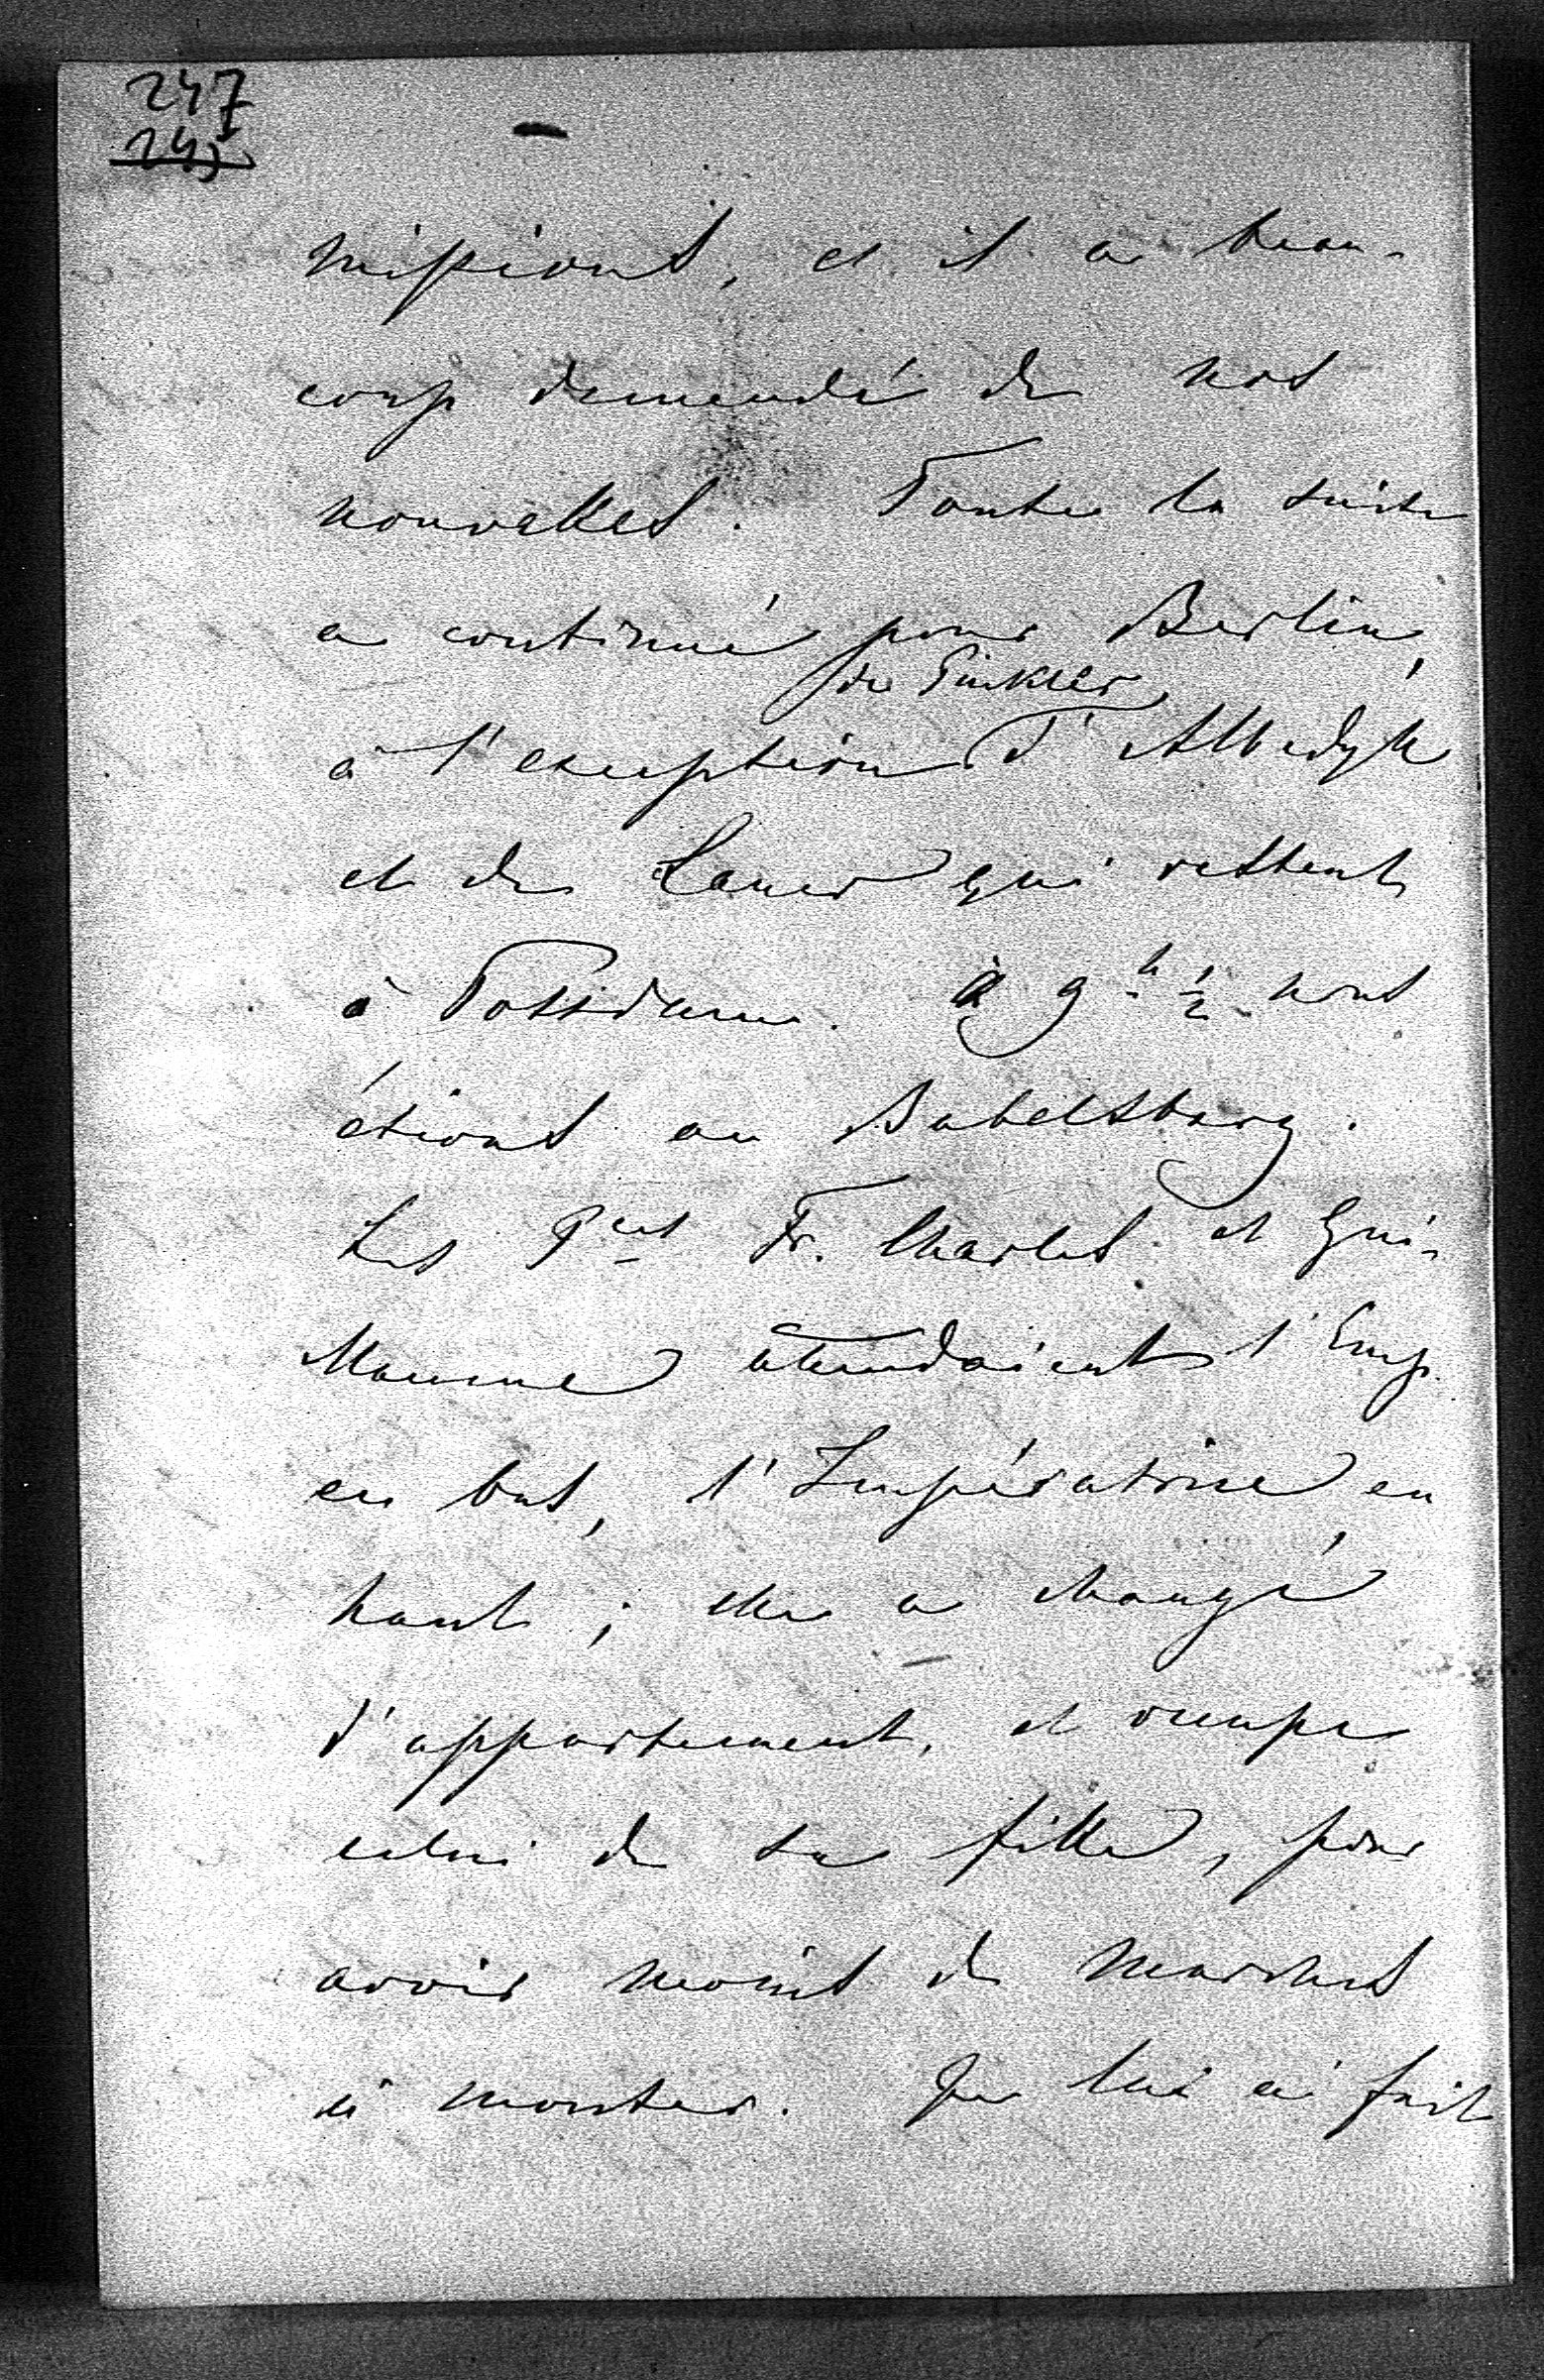 247
245
missions, et il a beau-
coup demandé de nos
nouvelles. Toute la suite
a continué pour Berlin,
de Winkler,
à l'exception d'Albedyll
et de Lauer qui restent
à Potsdam. à 9 h 1/2 nous
étions au Babelsberg.
Les Pces Fr. Charles et Gui-
llaume attendaient l'Emp.
en bas, l'Impératrice en
haut ; elle a changé
d'appartement, et occupe
celui de sa fille, pour
avoir moins de marches
à monter. Je lui ai fait